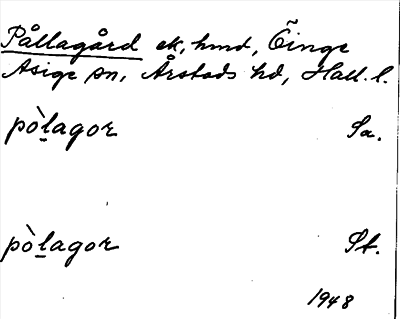 Pållagård ek, hmd, Öinge
Asige sn, Årstads hd, Hall. l.
pòlagor Sa.
pòlagor St.
1948